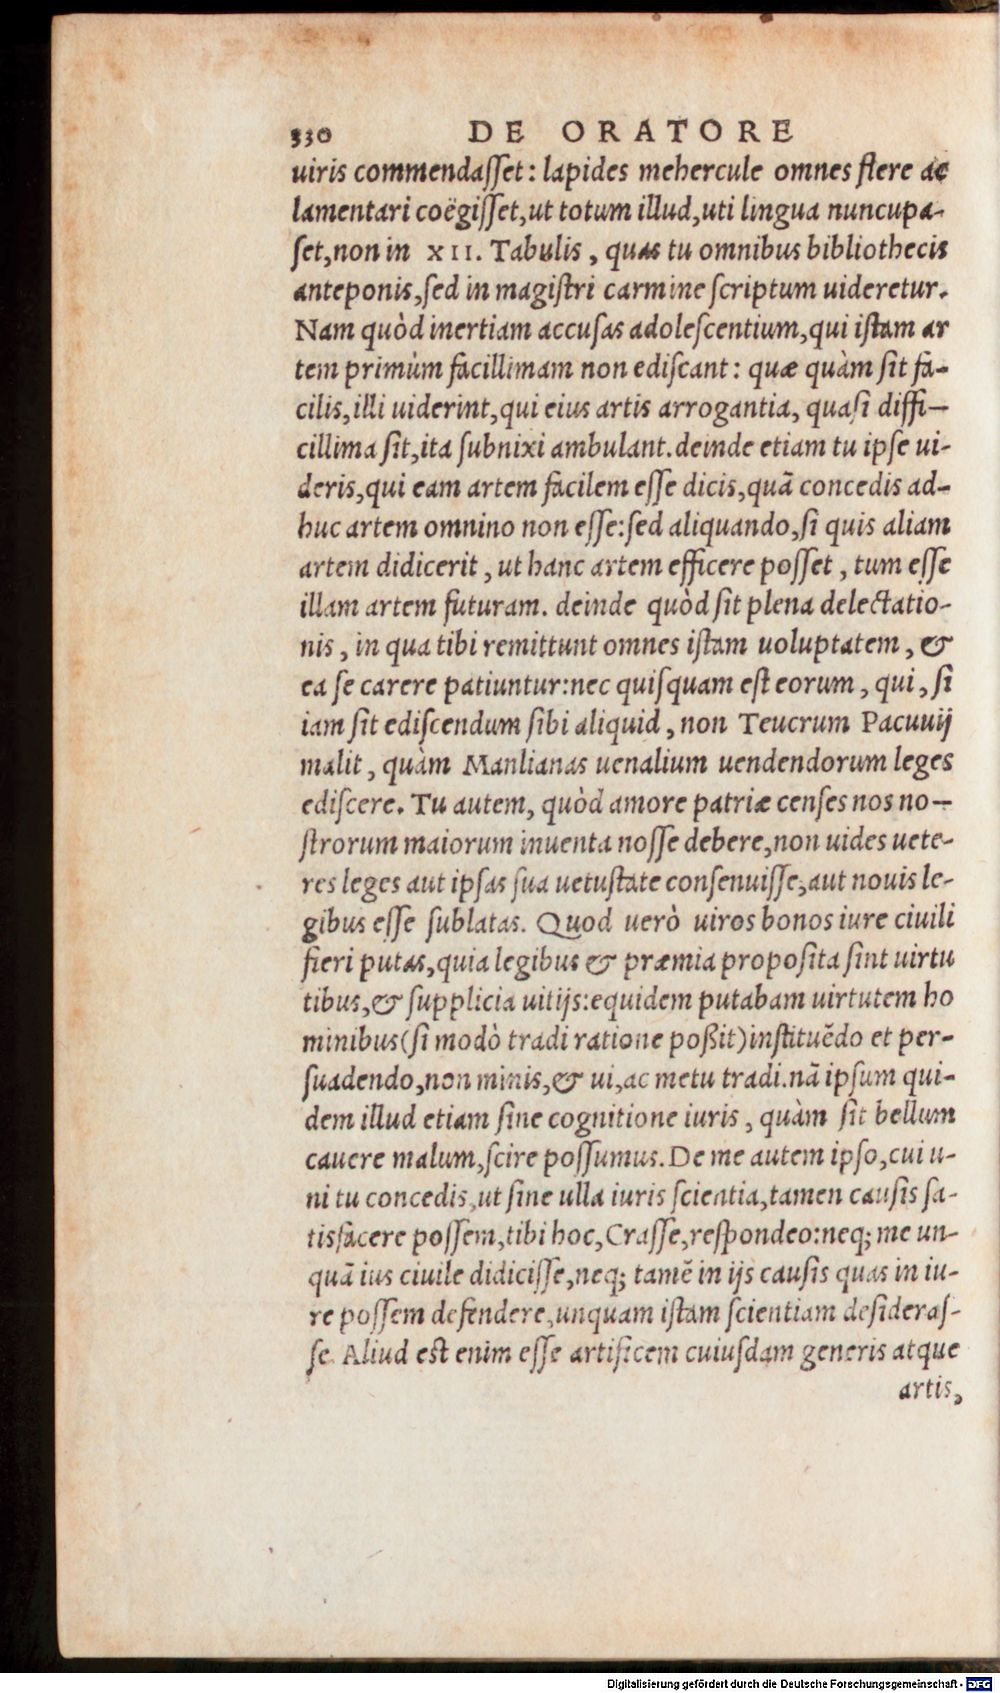 330 DE ORATORE
uiris commendasset: lapides mehercule omnes flere ac
lamentari coëgisset,ut totum illud,uti lingua nuncupa-
set,non in XII. Tabulis, quas tu omnibus bibliothecis
anteponis,sed in magistri carmine scriptum uideretur.
Nam quòd inertiam accusas adolescentium,qui istam ar
tem primùm facillimam non ediscant: quæ quàm sit fa-
cilis,illi uiderint,qui eius artis arrogantia, quasi diffi-
cillima sit,ita subnixi ambulant.deinde etiam tu ipse ui-
deris,qui eam artem facilem esse dicis,quā concedis ad-
huc artem omnino non esse:sed aliquando,si quis aliam
artem didicerit, ut hanc artem efficere posset, tum esse
illam artem futuram. deinde quòd sit plena delectatio-
nis, in qua tibi remittunt omnes istam uoluptatem, &
ea se carere patiuntur:nec quisquam est eorum, qui, si
iam sit ediscendum sibi aliquid, non Teucrum Pacuuij
malit, quàm Manlianas uenalium uendendorum leges
ediscere. Tu autem, quòd amore patriæ censes nos no-
strorum maiorum inuenta nosse debere,non uides uete-
res leges aut ipsas sua uetustate consenuisse,aut nouis le-
gibus esse sublatas. Quod uerò uiros bonos iure ciuili
fieri putas,quia legibus & præmia proposita sint uirtu
tibus,& supplicia uitijs:equidem putabam uirtutem ho
minibus(si modò tradi ratione poßit)instituēdo et per-
suadendo,non minis,& ui,ac metu tradi.nā ipsum qui-
dem illud etiam sine cognitione iuris, quàm sit bellum
cauere malum,scire possumus.De me autem ipso,cui u-
ni tu concedis,ut sine ulla iuris scientia,tamen causis sa-
tisfacere possem,tibi hoc,Crasse,respondeo:neq; me un-
quā ius ciuile didicisse,neq; tamē in ijs causis quas in iu-
re possem defendere,unquam istam scientiam desideras-
se. Aliud est enim esse artificem cuiusdam generis atque
artis,
Digitalisierung gefördert durch die Deutsche Forschungsgemeinschaft - DFG